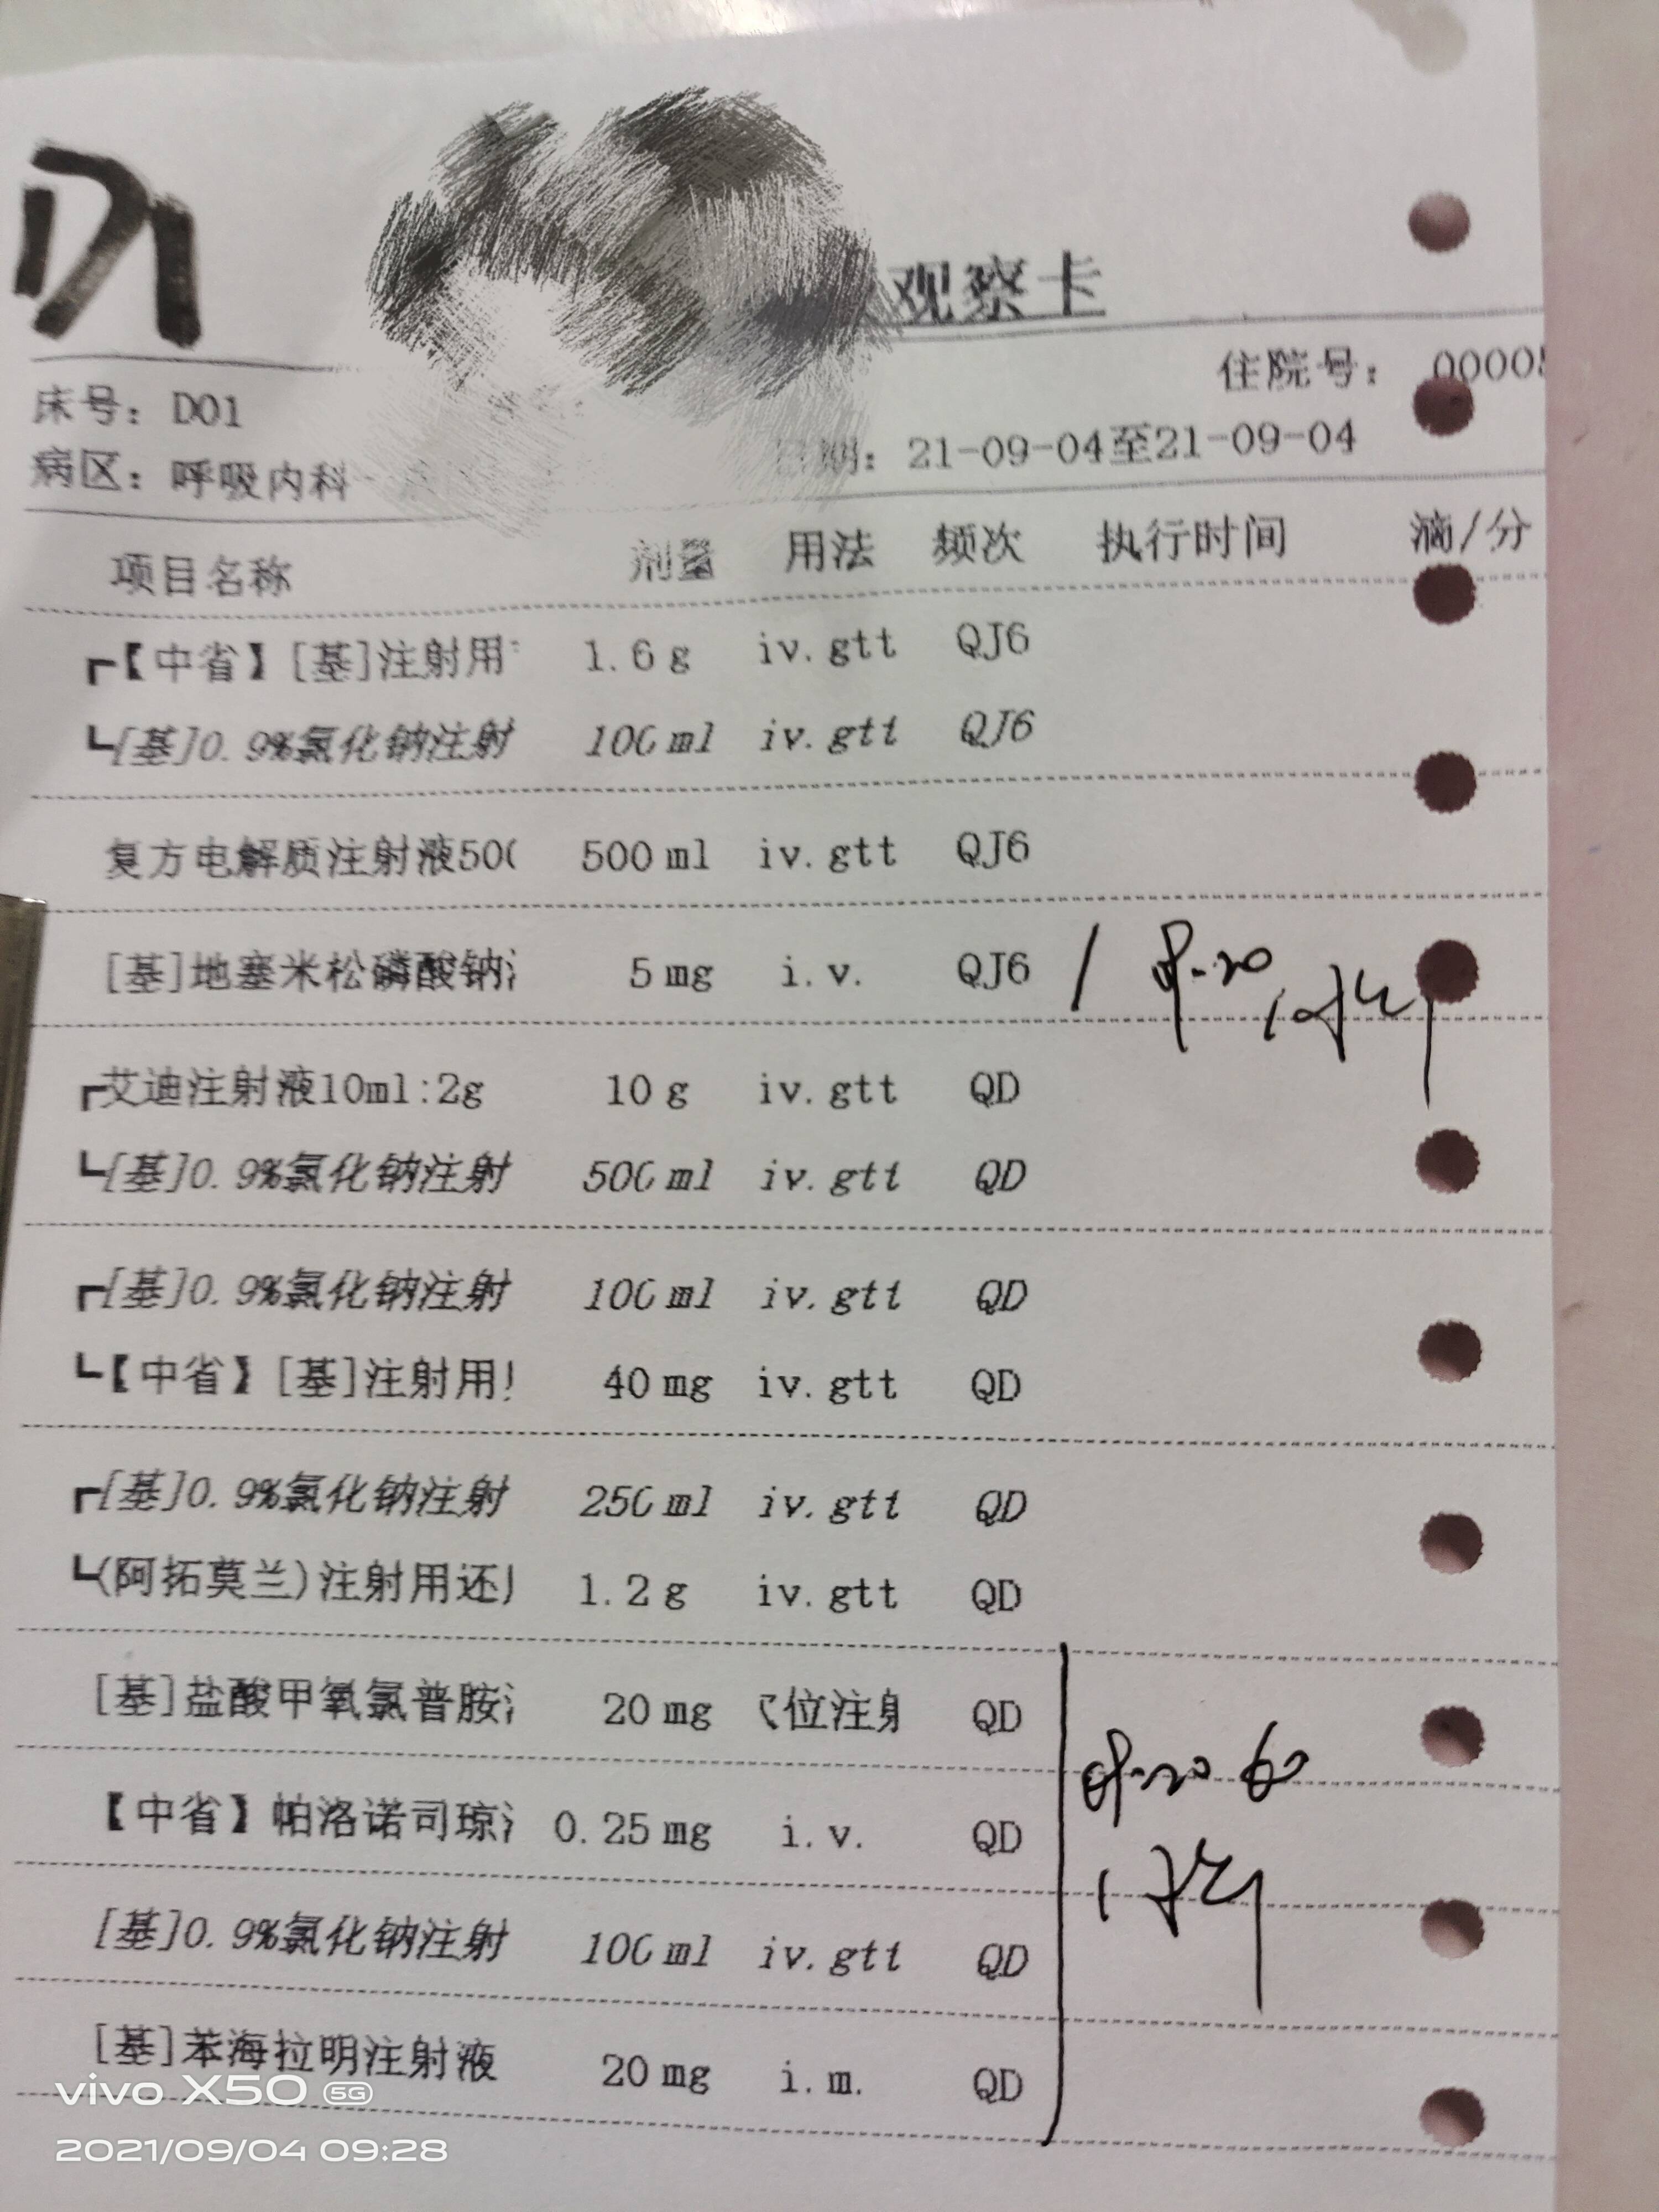 D1
观察卡
住院号： 0000
床号：D01
病区：呼吸内科 日期：21-09-04至21-09-04
项目名称 剂量 用法 频次 执行时间 滴/分
┏【中省】[基]注射用 1.6 g iv.gtt QJ6
┗[基]0.9%氯化钠注射 100 ml iv.gtt QJ6
复方电解质注射液500 500 ml iv.gtt QJ6
[基]地塞米松磷酸钠 5 mg i.v. QJ6
┏艾迪注射液10ml:2g 10 g iv.gtt QD
┗[基]0.9%氯化钠注射 500 ml iv.gtt QD
┏[基]0.9%氯化钠注射 100 ml iv.gtt QD
┗【中省】[基]注射用 40 mg iv.gtt QD
┏[基]0.9%氯化钠注射 250 ml iv.gtt QD
┗(阿拓莫兰)注射用还 1.2 g iv.gtt QD
[基]盐酸甲氧氯普胺 20 mg 位注射 QD
【中省】帕洛诺司琼 0.25 mg i.v. QD
[基]0.9%氯化钠注射 100 ml iv.gtt QD
[基]苯海拉明注射液 20 mg i.m. QD
vivo X50 5G
2021/09/04 09:28